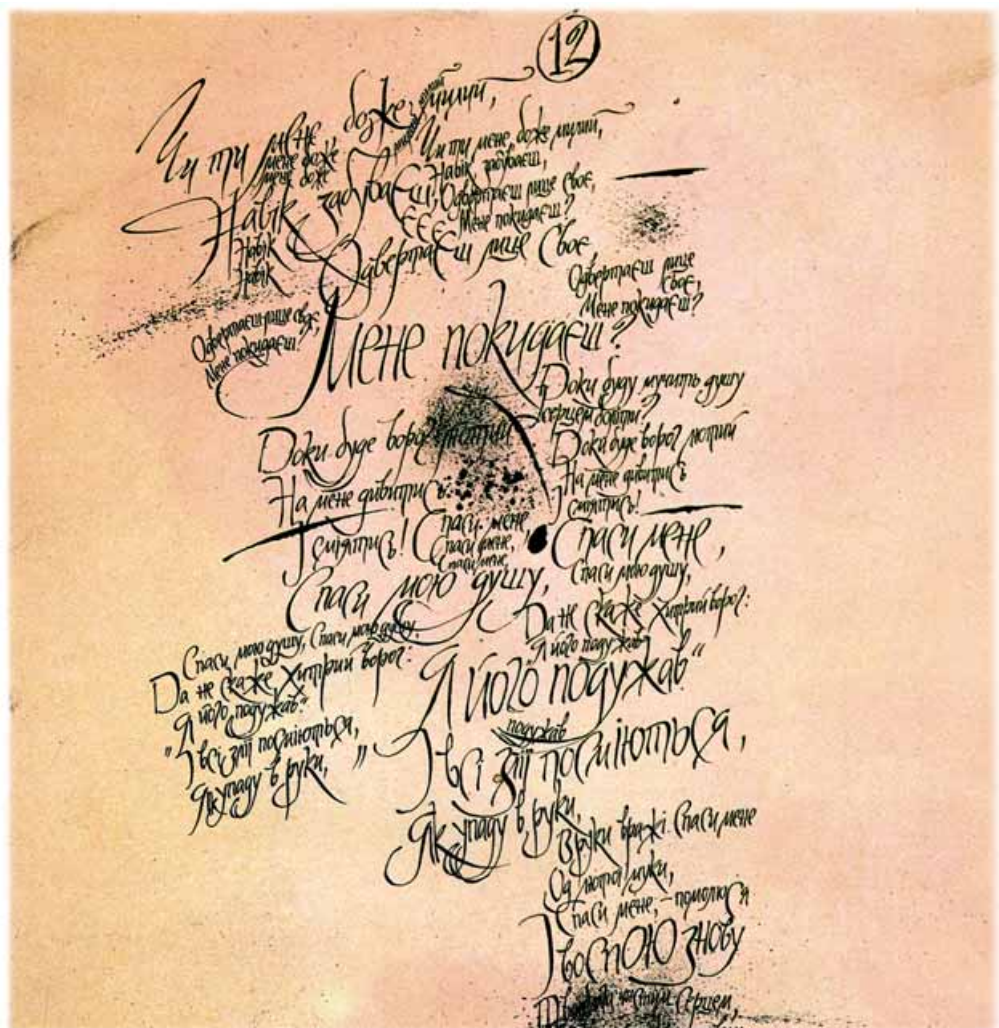 12
Чи ти мене, боже, милий,
мене боже
мене боже
Навік забуваєш,
Навік
Навік
Чи ти мене, боже милий,
Навік забуваєш,
Одвертаєш лице своє,
Мене покидаєш?
Є Є Є
Одвертаєш лице Своє
Одвертаєш лице
своє,
Мене покидаєш?
Одвертаєш лице своє,
Мене покидаєш?
Мене покидаєш?
Доки буду мучить душу
І серцем боліти?
Доки буде ворог лютий
На мене дивитись
І сміятись!
Доки буде ворог лютий
На мене дивитись
І сміятись! Спаси мене,
Спаси мене,
Спаси мене,
Спаси мене,
Спаси мою душу,
Спаси мою душу,
Да не скаже хитрий ворог:
Я його подужав
Спаси мою душу, Спаси мою душу,
Да не скаже хитрий ворог:
"Я його подужав."
"І всі злії посміються,
Як упаду в руки, "
Я його подужав"
подужав
І всі злії посміються,
Як упаду в руки,
В руки вражі. Спаси мене
Од лютої муки,
Спаси мене, – помолюся
І воспОЮ знову
чистим серцем,